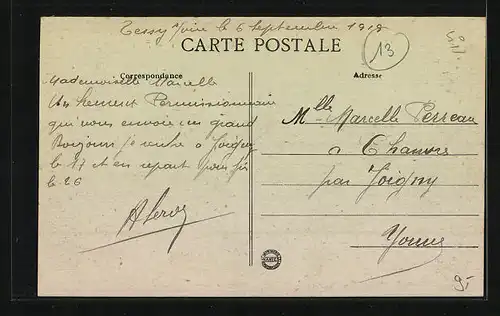 Tessy Juin le 6 Septembre 1919
CARTE POSTALE
13
Correspondance
Adresse
Mademoiselle Marcelle
Un Permissionnaire
qui vous envoie un grand
Bonjour je rentre a Joigny
le 17 et en repart pour
le 26
A Leroy
Mlle Marcelle Perreau
a Chamvre
par Joigny
Yonne
9,-